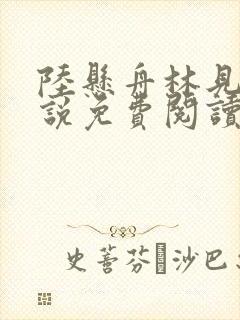 陸懸舟林見
說免費閱讀
史蒈芬·沙巴